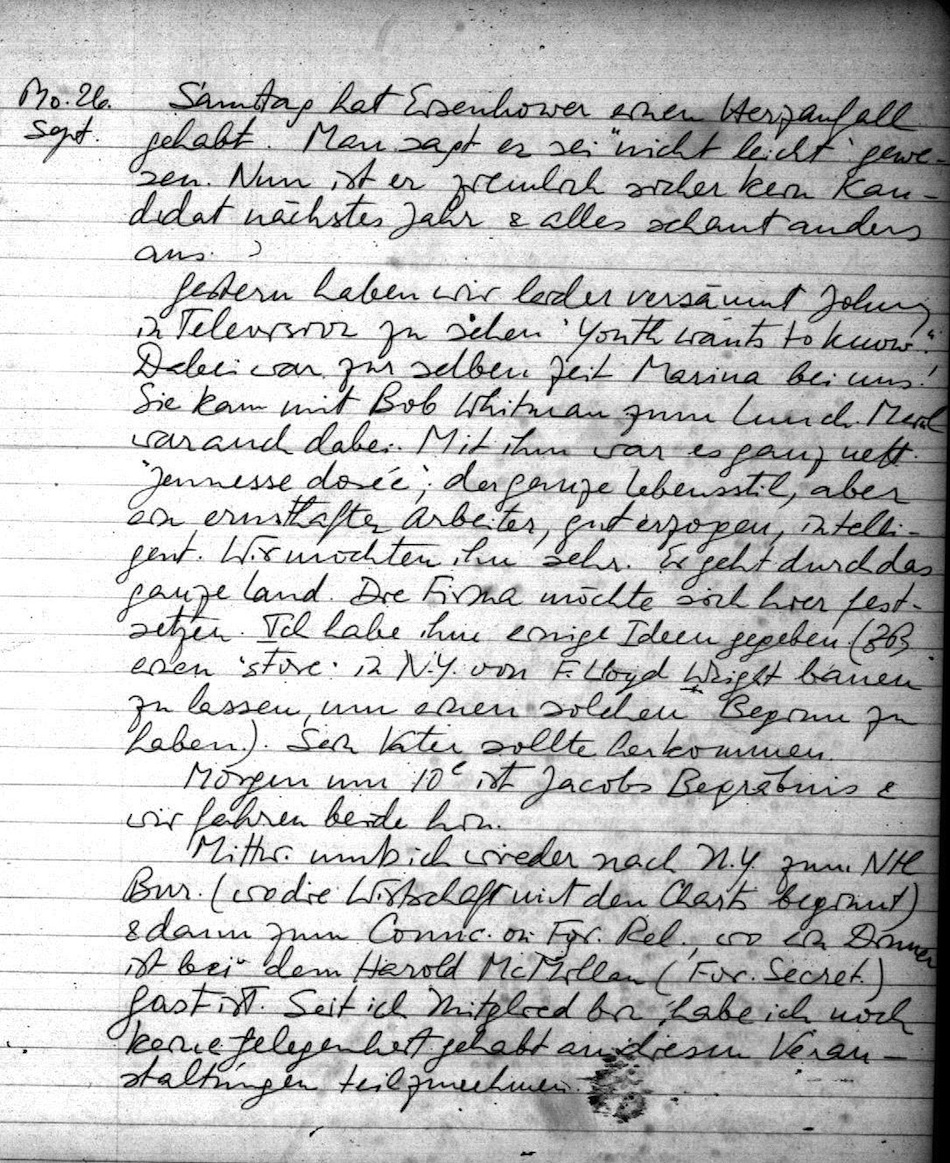 Mo. 26. Samstag hat Eisenhower einen Herzanfall
Sept. gehabt. Man sagt er sei "nicht leicht" gewe-
sen. Nun ist er ziemlich sicher kein Kan-
didat nächstes Jahr & alles schaut anders
aus.
Gestern haben wir leider versäumt Johnny
in Television zu sehen "Youth wants to know".
Dabei war zur selben Zeit Marina bei uns!
Sie kam mit Bob Whitman zum Lunch.
war auch dabei. Mit ihm war es ganz nett.
"jeunesse dorée", der ganze Lebensstil, aber
ein ernsthafter Arbeiter, gut erzogen, intelli-
gent. Wir mochten ihn sehr. Er geht durch das
ganze Land. Die Firma möchte sich hier fest-
setzen. Ich habe ihm einige Ideen gegeben (zB
einen "store" in N.Y. von F. Lloyd Wright bauen
zu lassen, um einen solchen Beginn zu
haben). Sein Vater sollte herkommen.
Morgen um 10 ist Jacobs Begräbnis &
wir fahren beide hin.
Mittw. muß ich wieder nach N.Y. zum
Bur. (wo die Wirtschaft mit den Charts beginnt)
& dann zum Counc. on For. Rel., wo ein Dinner
ist bei dem Harold McMillan (For. Secret.)
Gast ist. Seit ich Mitglied bin habe ich noch
keine Gelegenheit gehabt an diesen Veran-
staltungen teilzunehmen.